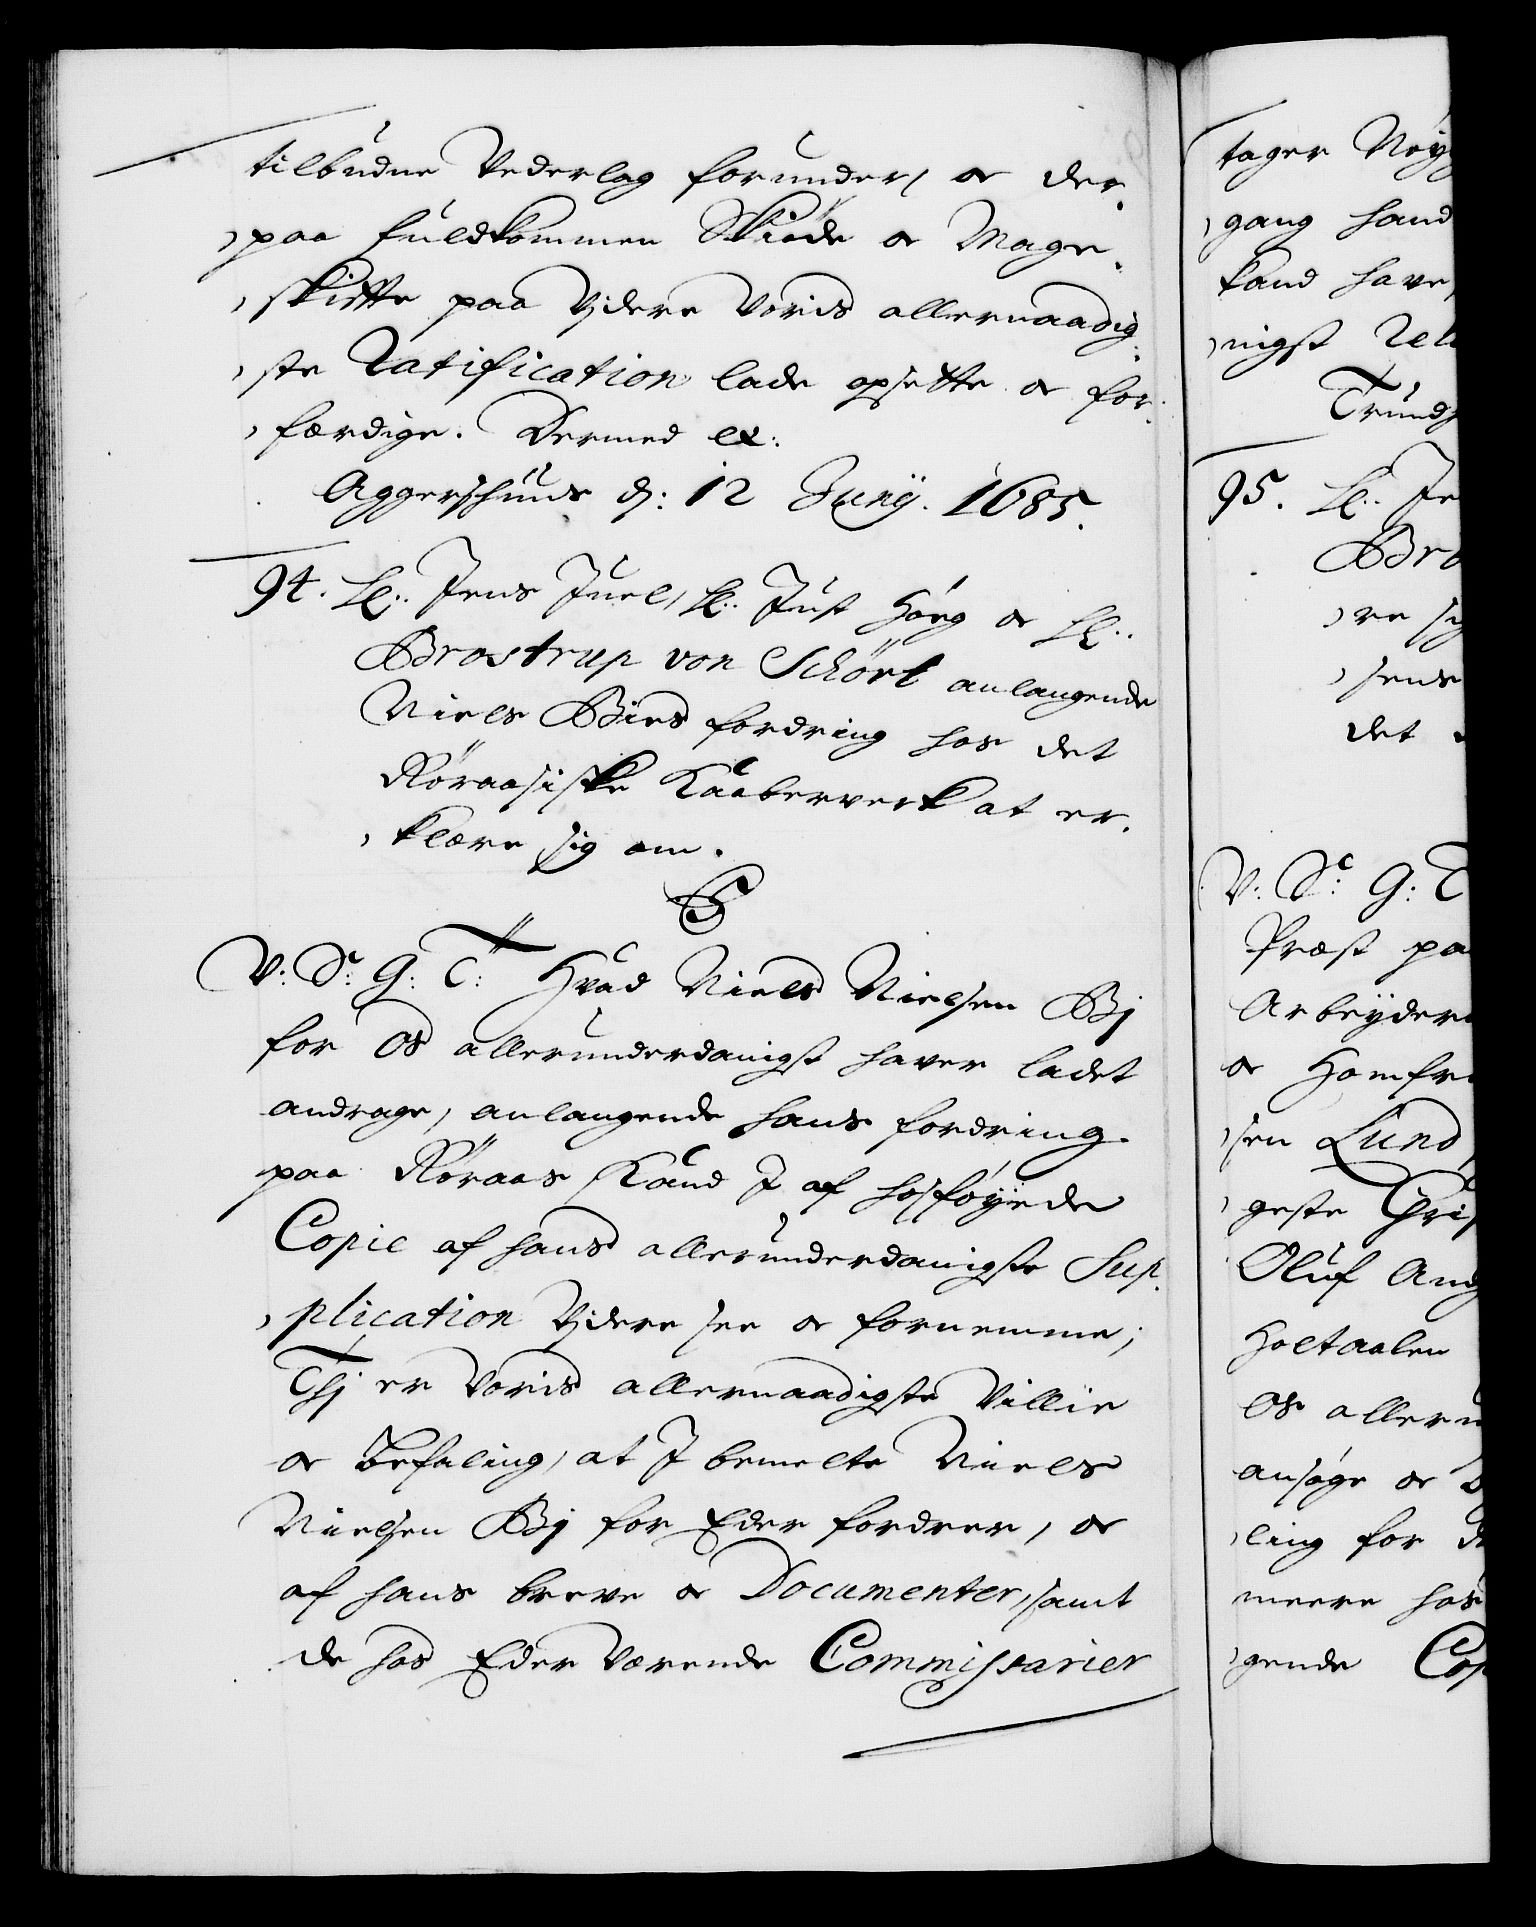 tilbudne Vederlag forunder, og der,
,paa fuldkommen Skiöde og Mage,
,skiffte paa Vjdere Voris allernaadig,
,ste Ratification lade opsette og for,
,færdige. Dermed etc:
Aggershuus d: 12 Junij. 1685.
94. Hl: Jens Juel, Hl: Just Høeg og Hl:
Brostrup von Schört anlangende
Niels Bies fordring hos det
Röraasiske Kaaberverk at er,
,klære sig om.
V: S: G: T: Hvad Niels Nielsen Bj
for Os allerunderdanigst haver ladet
andrage, anlangende hans fordring
paa Röraas Kand J af hosföyede
Copie af hans allerunderdanigste Sup,
,plication Vjdere see og fornemme;
Thj er Voris allernaadigste Villie
og Befaling, at J bemelte Niels
Nielsen Bj for Eder fordrer, og
af hans breve og Documenter, samt
de hos Eder Værende Commissarier
tager Nöy
,gang hand
kand have,
,nigst Rel
Trundh
95. Hl: Je
Bro
,re sig
,sens
det
V: S: G: T
Præst pa
Arbeyder
og Homfr
,sen Lund,
,geste Chri
Oluf And
Holtaalen
Os allerun
ansöge og
,ling for
meere hos
,gende Cop